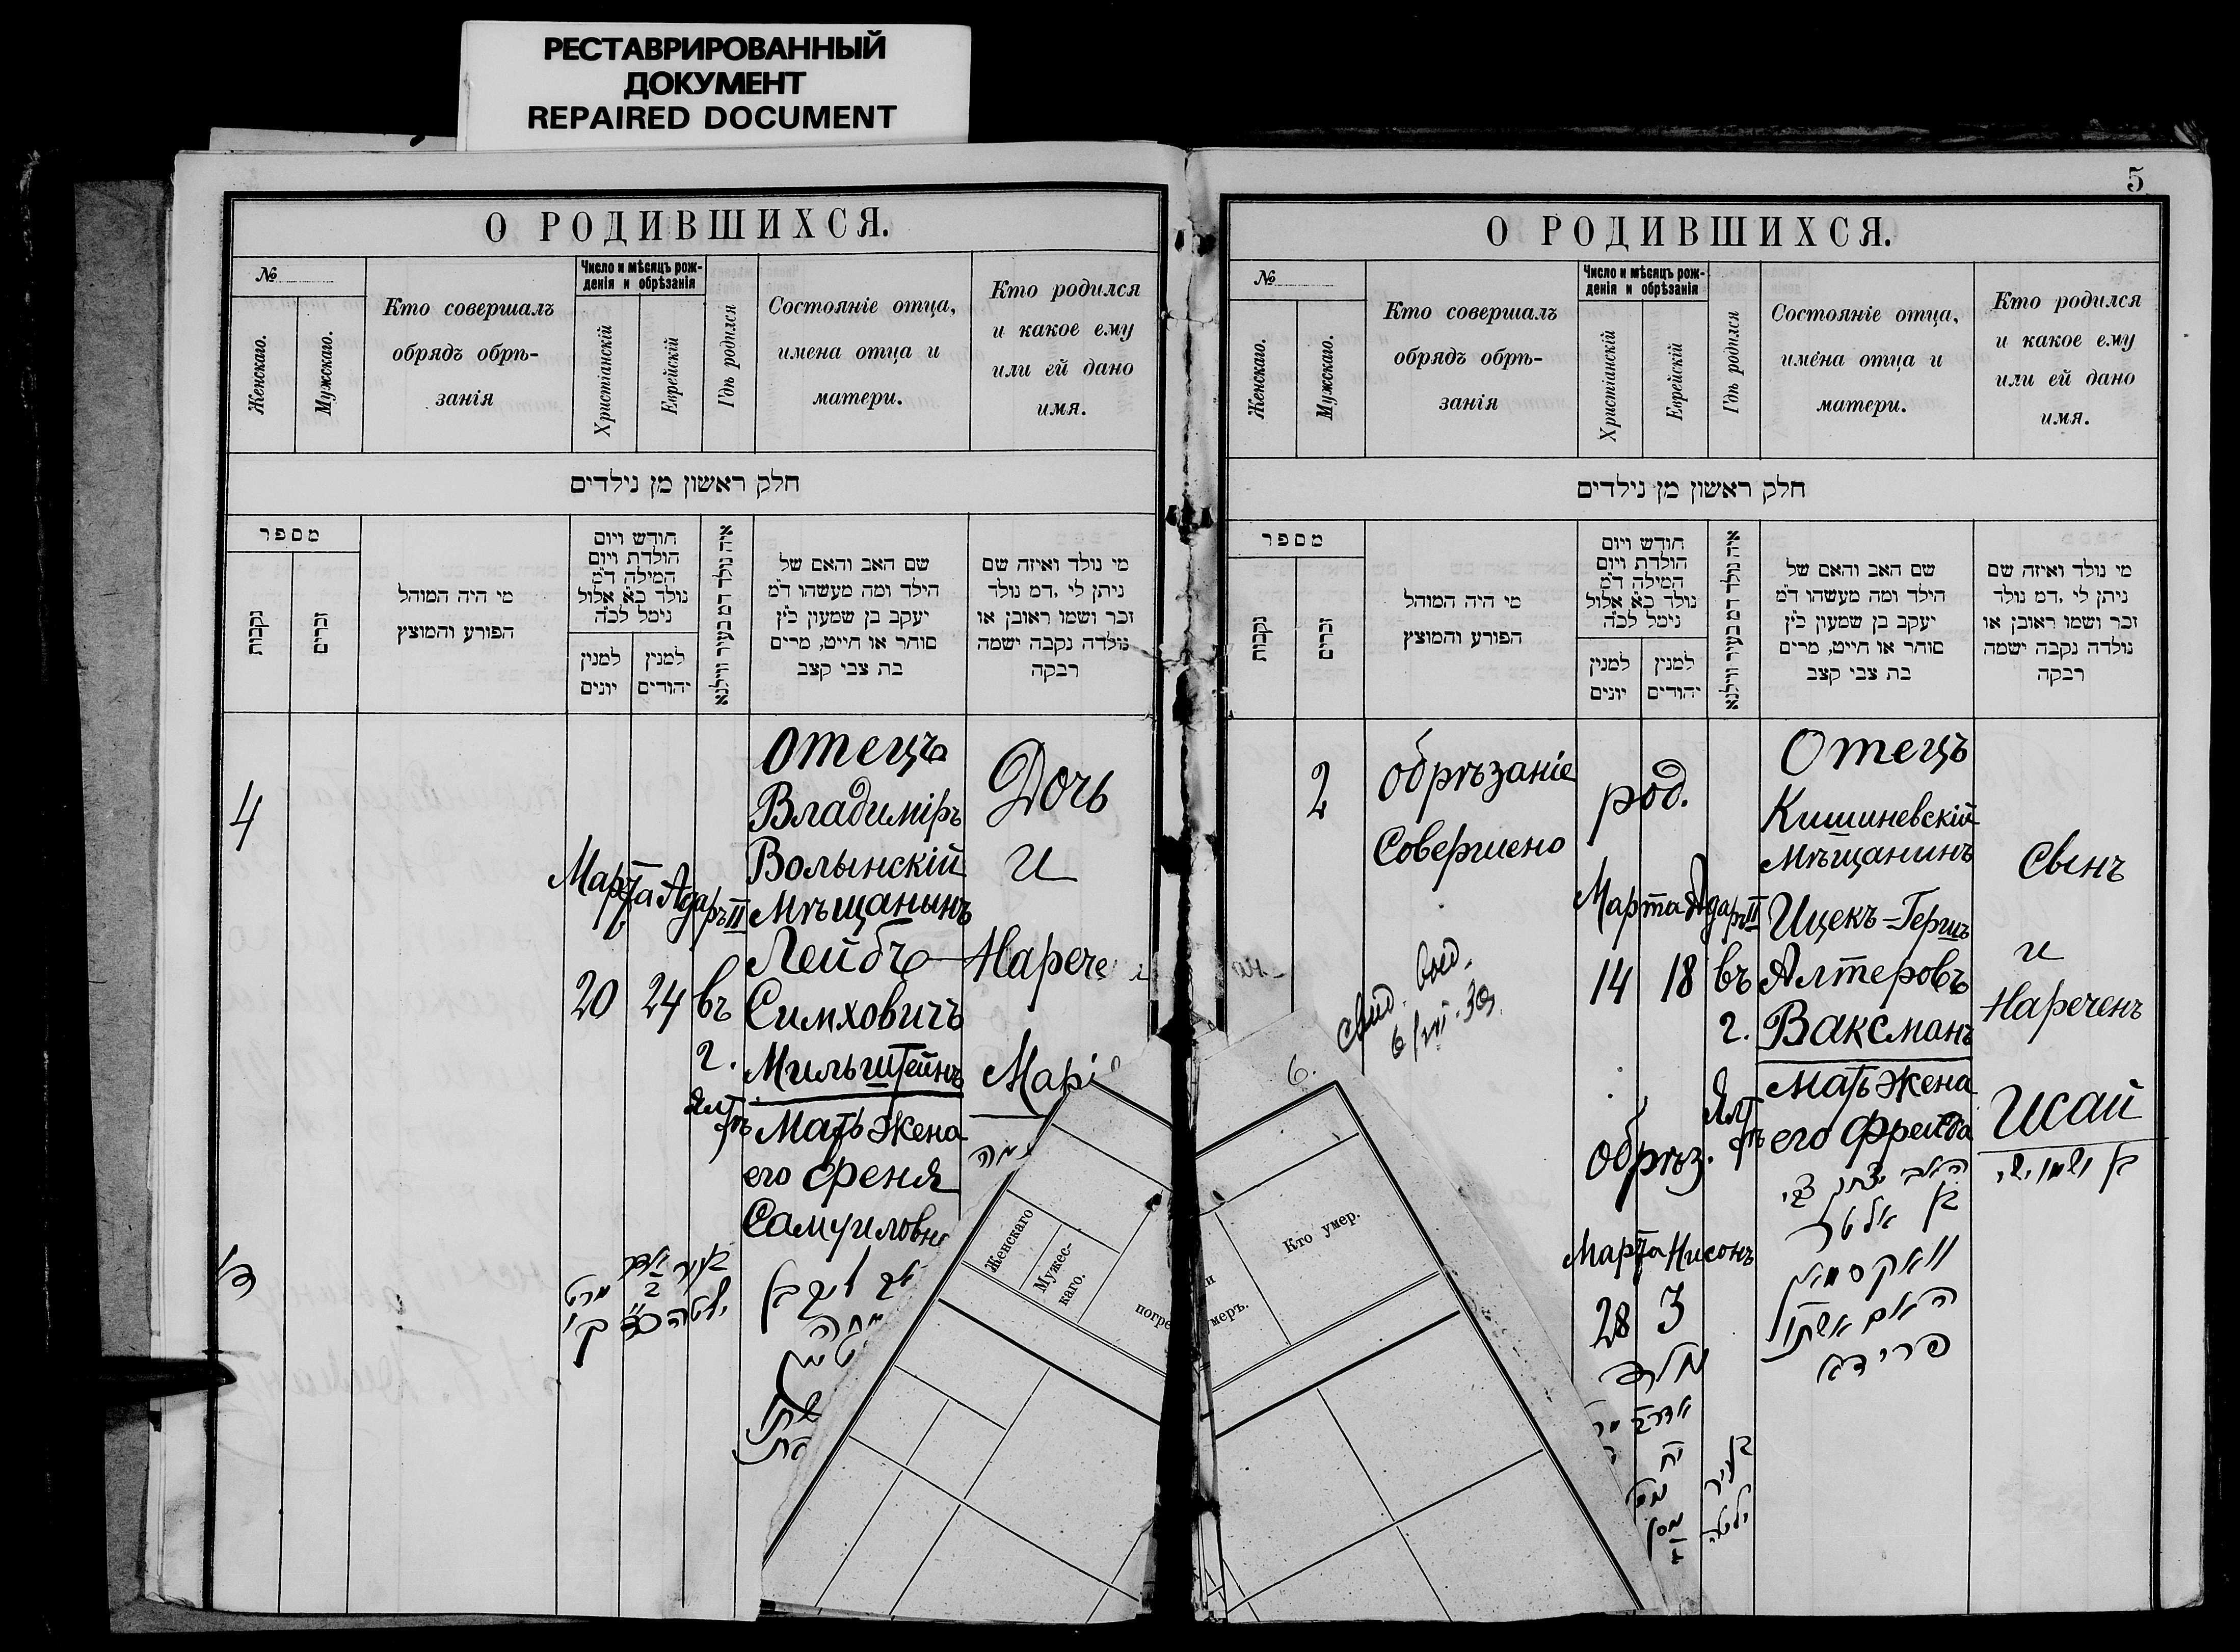 РЕСТАВРИРОВАННЫЙ
ДОКУМЕНТ
REPAIRED DOCUMENT
О РОДИВШИХСЯ.
№
Женскаго.
Мужскаго.
Кто совершалъ
обрядъ обрѣ-
занія
Число и мѣсяцъ рож-
денія и обрѣзанія
Христіанскій
Еврейскій
Гдѣ родился
Состояніе отца,
имена отца и
матери.
Кто родился
и какое ему
или ей дано
имя.
חלק ראשון מן נילדים
מספר
נקבות
זכרים
מי היה המוהל
הפורע והמוצץ
חודש ויום
הולדת ויום
המילה ד״מ
נולד כ״א אלול
נימל לכ״ה
למנין
יונים
למנין
יהודים
איה נולד דמ בעיר ווילנא
שם האב והאם של
הילד ומה מעשהו ד״מ
יעקב בן שמעון כ״ץ
סוחר או חייט, מרים
בת צבי קצב
מי נולד ואיזה שם
ניתן לי, דמ נולד
זכר ושמו ראובן או
נולדה נקבה ישמה
רבקה
4
Марта Адаръ II
20 24 въ
г.
Ял
тѣ
Отецъ
Владиміръ
Волынскій
Мѣщанинъ
Лейбъ
Симховичъ
Мильштейнъ
Мать жена
его Френя
Самуиловн
Дочь
и
Нарече
Марі
Женскаго
Мужес-
каго.
погре
5
О РОДИВШИХСЯ.
№
Женскаго.
Мужскаго.
Кто совершалъ
обрядъ обрѣ-
занія
Число и мѣсяцъ рож-
денія и обрѣзанія
Христіанскій
Еврейскій
Гдѣ родился
Состояніе отца,
имена отца и
матери.
Кто родился
и какое ему
или ей дано
имя.
חלק ראשון מן נילדים
מספר
נקבות
זכרים
מי היה המוהל
הפורע והמוצץ
חודש ויום
הולדת ויום
המילה ד״מ
נולד כ״א אלול
נימל לכ״ה
למנין
יונים
למנין
יהודים
איה נולד דמ בעיר ווילנא
שם האב והאם של
הילד ומה מעשהו ד״מ
יעקב בן שמעון כ״ץ
סוחר או חייט, מרים
בת צבי קצב
מי נולד ואיזה שם
ניתן לי, דמ נולד
זכר ושמו ראובן או
נולדה נקבה ישמה
רבקה
2
обрѣзаніе
Совершено
род.
Марта Адаръ II
14 18 въ
г.
Ял
тѣ
обрѣз.
Марта Нисонъ
28 3
Отецъ
Кишиневскій
Мѣщанинъ
Ицекъ-Гершъ
Алтеровъ
Ваксманъ
Мать жена
его Фрейда
האב יצחק צבי
בן אלטר
וואקסמאן
האם אשתו
פריידא
Сынъ
и
Нареченъ
Исай
בן ושמו ישי
6.
Кто умер.
умеръ.